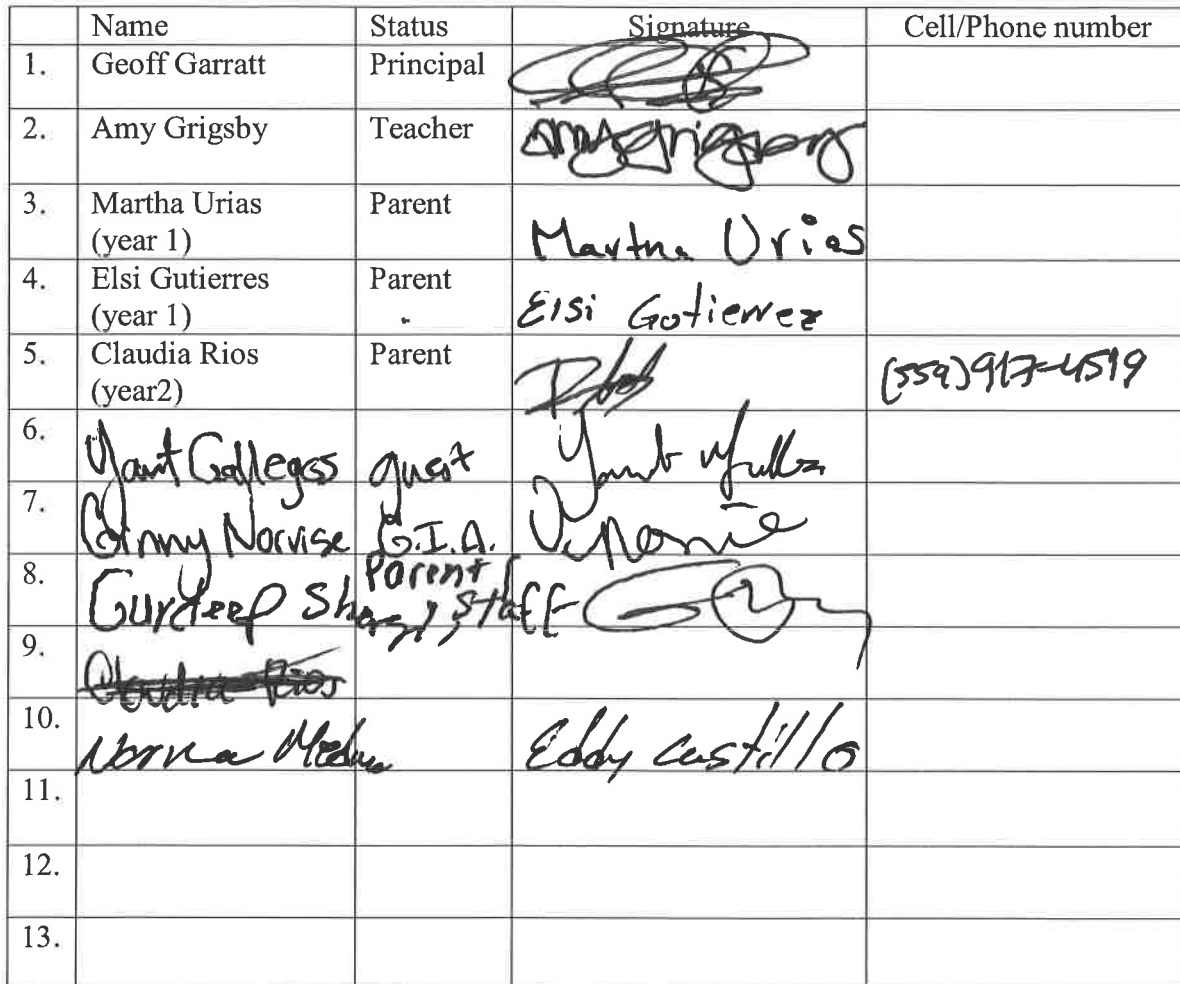 Name Status Signature Cell/Phone number
1. Geoff Garratt Principal
2. Amy Grigsby Teacher Amy Grigsby
3. Martha Urias Parent
(year 1) Martha Urias
4. Elsi Gutierres Parent
(year 1) Elsi Gutierrez
5. Claudia Rios Parent (559) 917-4519
(year2)
6. Gallegos guest
7. Ginny Norvise G.I.A.
8. Parent
Gurdeep Staff
9. Claudia Rios
10. Norma Eddy Castillo
11.
12.
13.